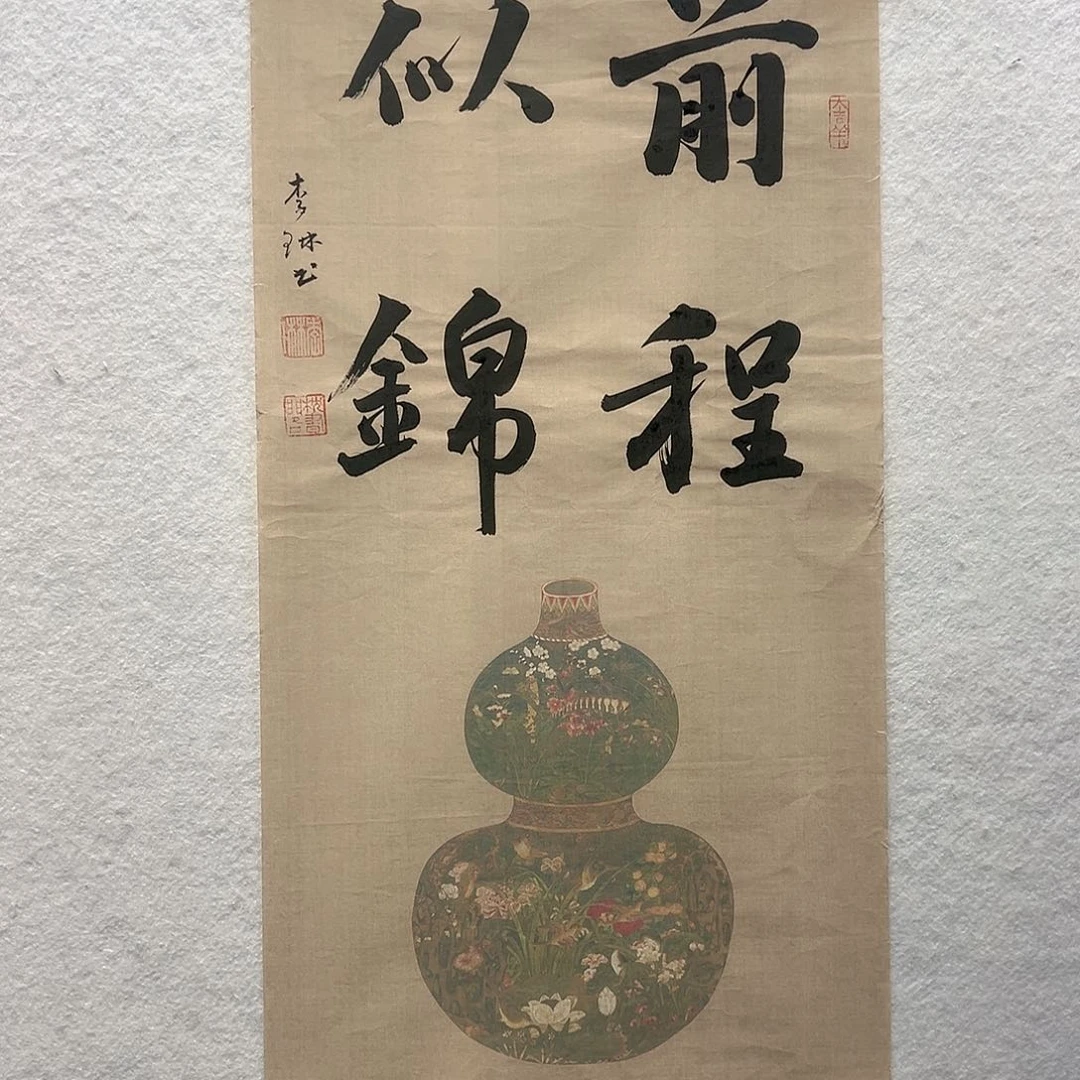 前程
似錦
李琳书